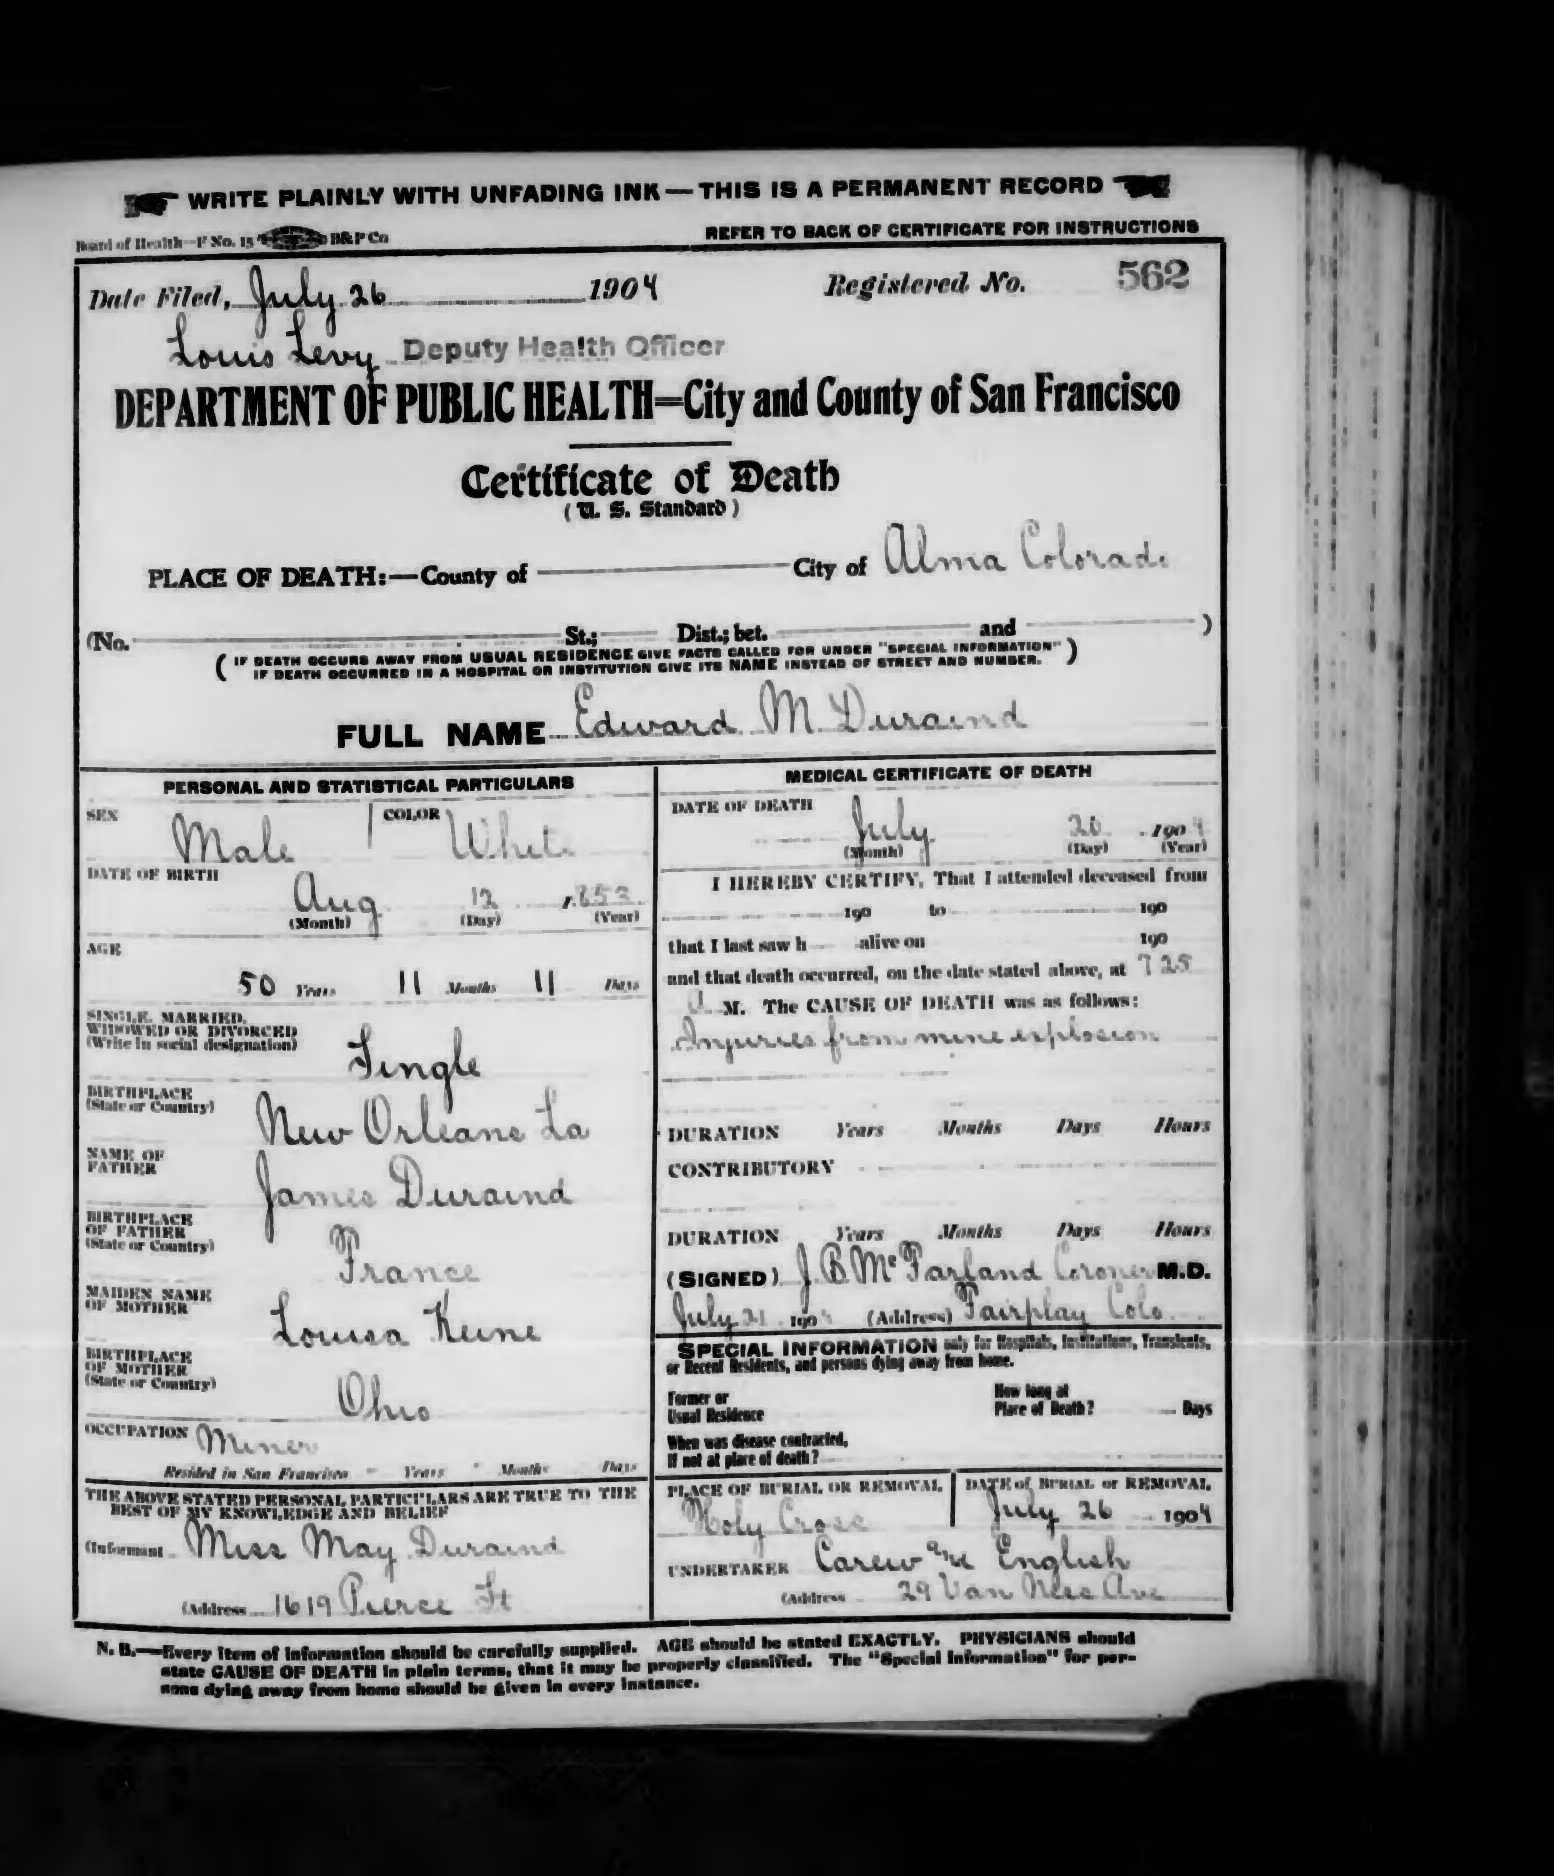 WRITE PLAINLY WITH UNFADING INK — THIS IS A PERMANENT RECORD
Board of Health—F No. 15 B&P Co REFER TO BACK OF CERTIFICATE FOR INSTRUCTIONS
Date Filed, July 26 1904 Registered No. 562
Louis Levy Deputy Health Officer
DEPARTMENT OF PUBLIC HEALTH=City and County of San Francisco
Certificate of Death
(U. S. Standard)
PLACE OF DEATH:—County of City of Alma Colorado
(No. St.; Dist.; bet. and )
( IF DEATH OCCURS AWAY FROM USUAL RESIDENCE GIVE FACTS CALLED FOR UNDER "SPECIAL INFORMATION" )
IF DEATH OCCURRED IN A HOSPITAL OR INSTITUTION GIVE ITS NAME INSTEAD OF STREET AND NUMBER.
FULL NAME Edward M Duraind
PERSONAL AND STATISTICAL PARTICULARS
SEX Male COLOR White
DATE OF BIRTH
Aug 12 1853
(Month) (Day) (Year)
AGE
50 Years 11 Months 11 Days
SINGLE, MARRIED,
WIDOWED OR DIVORCED
(Write in social designation) Single
BIRTHPLACE
(State or Country) New Orleans La
NAME OF
FATHER James Duraind
BIRTHPLACE
OF FATHER
(State or Country) France
MAIDEN NAME
OF MOTHER Louisa Keine
BIRTHPLACE
OF MOTHER
(State or Country) Ohio
OCCUPATION Miner
Resided in San Francisco - Years - Months Days
THE ABOVE STATED PERSONAL PARTICULARS ARE TRUE TO THE
BEST OF MY KNOWLEDGE AND BELIEF
(Informant Miss May Duraind
(Address 1619 Pierce St
MEDICAL CERTIFICATE OF DEATH
DATE OF DEATH
July 20 1904
(Month) (Day) (Year)
I HEREBY CERTIFY, That I attended deceased from
190 to 190
that I last saw h alive on 190
and that death occurred, on the date stated above, at 7 25
A M. The CAUSE OF DEATH was as follows:
Injuries from mine explosion
DURATION Years Months Days Hours
CONTRIBUTORY
DURATION Years Months Days Hours
(SIGNED) J. B. McFarland Coroner M.D.
July 21 1904 (Address) Fairplay Colo
SPECIAL INFORMATION only for Hospitals, Institutions, Transients,
or Recent Residents, and persons dying away from home.
Former or
Usual Residence
How long at
Place of Death? Days
When was disease contracted,
If not at place of death?
PLACE OF BURIAL OR REMOVAL
Holy Cross
DATE of BURIAL or REMOVAL
July 26 1904
UNDERTAKER Carew and English
(Address 29 Van Ness Ave
N. B.—Every item of information should be carefully supplied. AGE should be stated EXACTLY. PHYSICIANS should
state CAUSE OF DEATH in plain terms, that it may be properly classified. The "Special Information" for per-
sons dying away from home should be given in every instance.